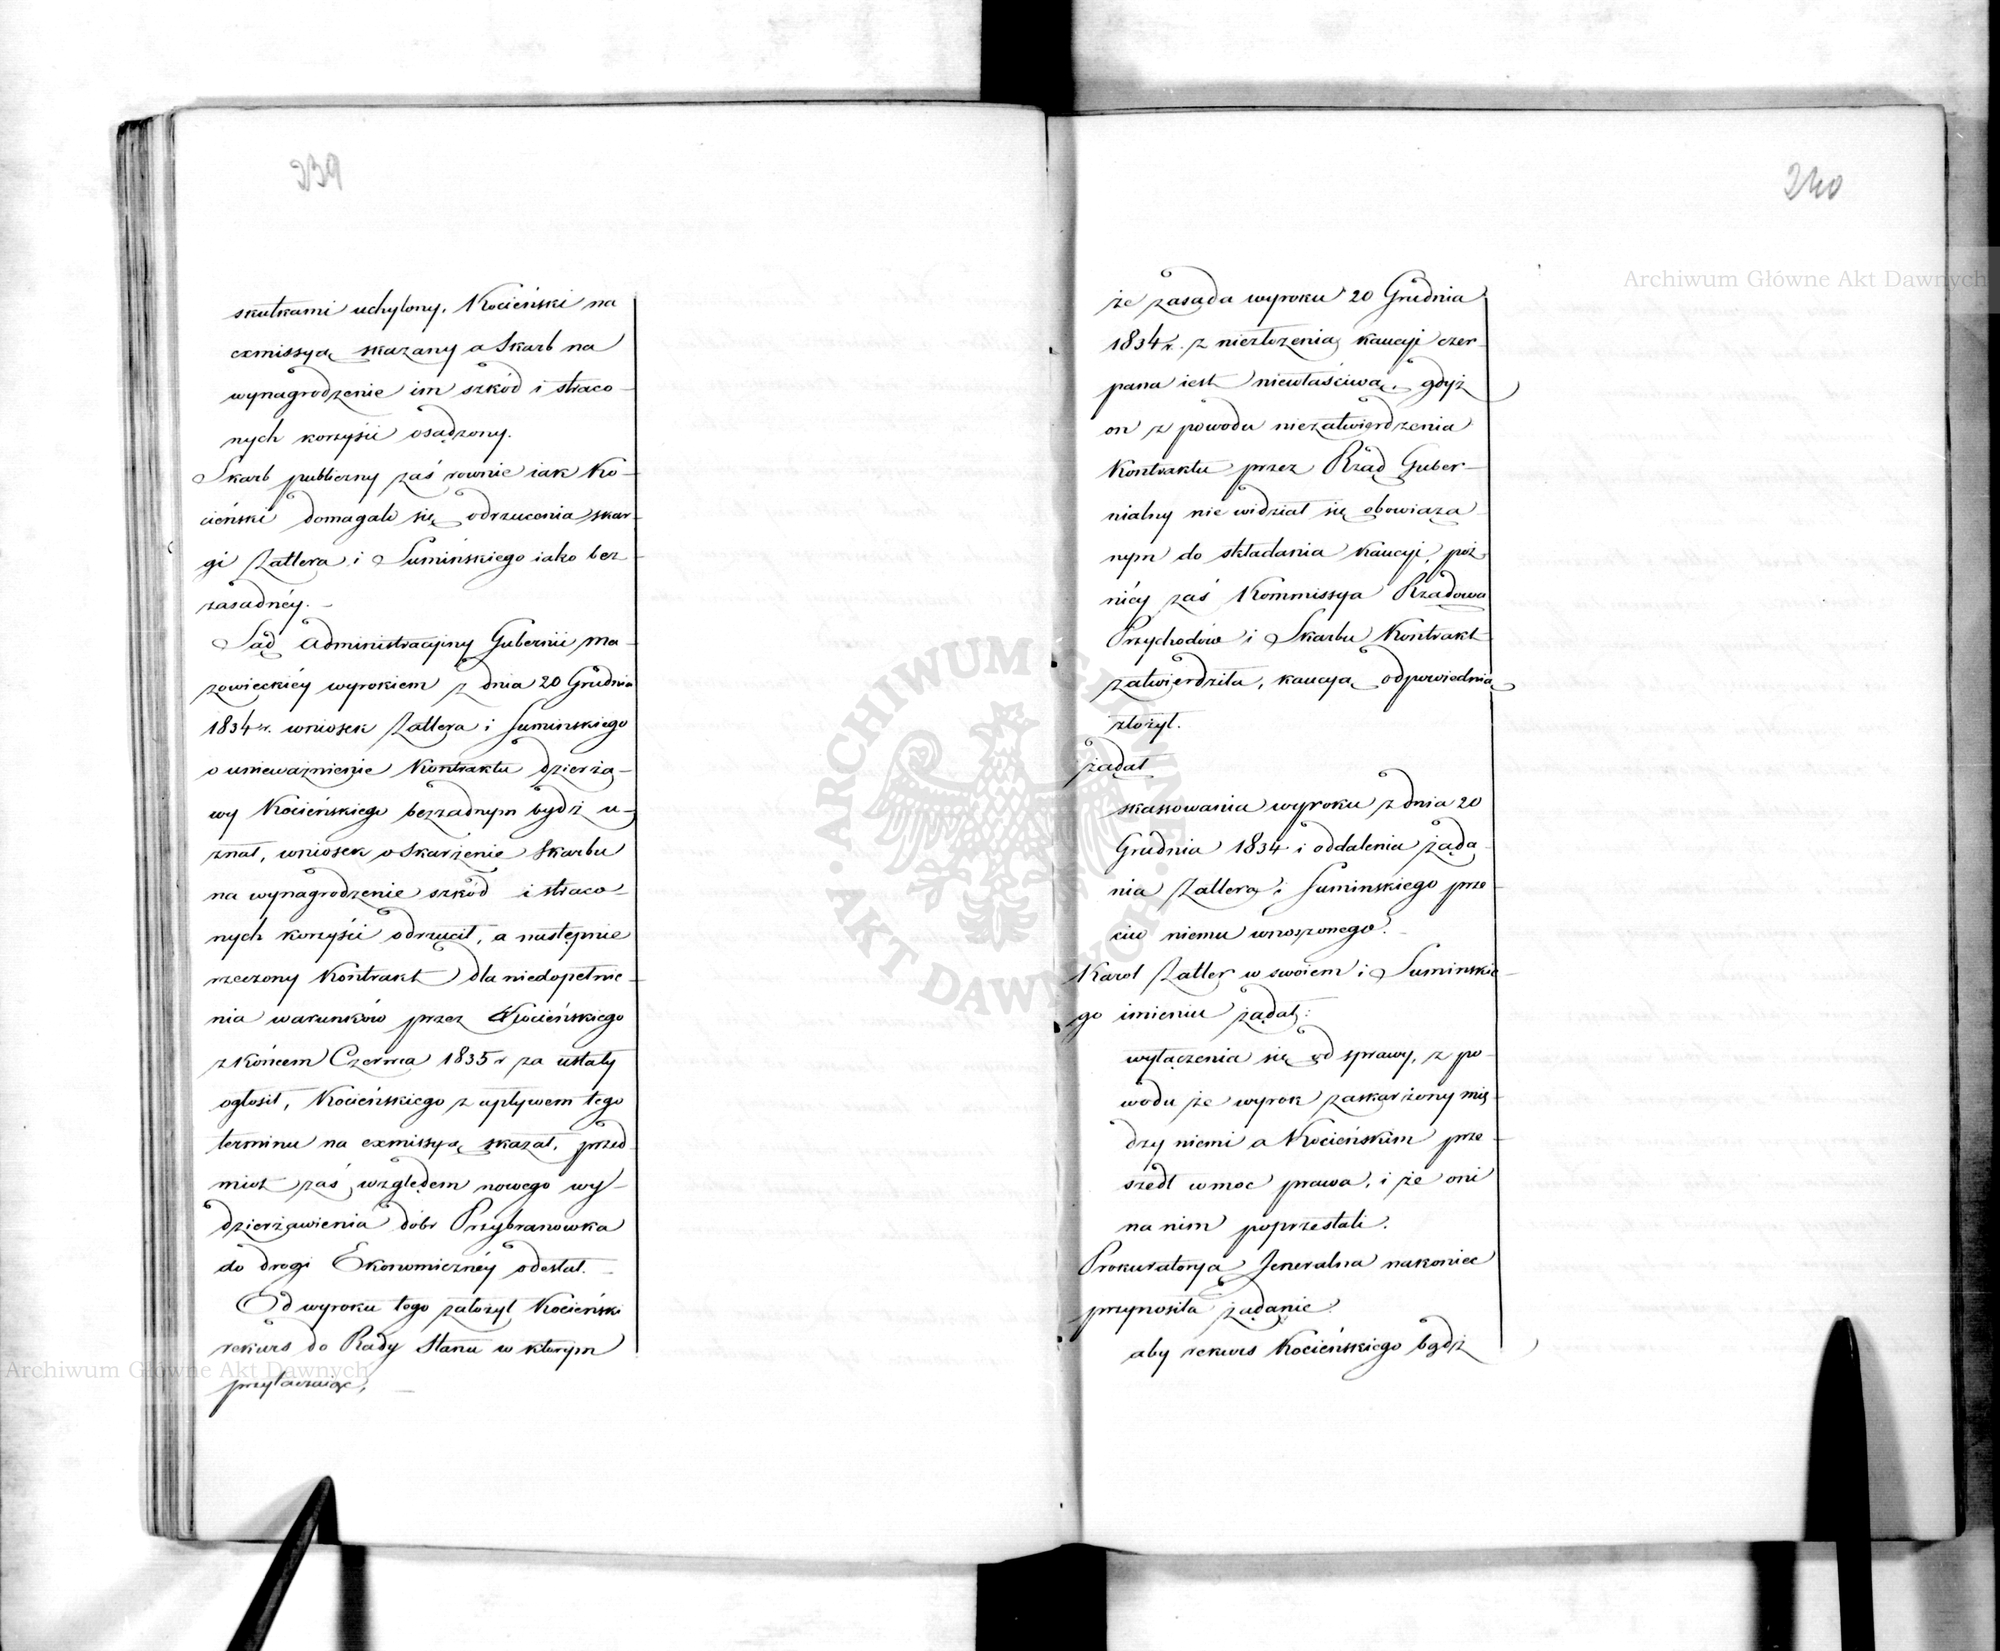 239
skutkami uchylony, Kocieński na
exmissyą skazany a Skarb na
wynagrodzenie im szkód i straco-
nych korzyści osądzony.
Skarb publiczny zaś rownie iak Ko-
cieński domagali się odrzucenia skar-
gi Zattera i Sumińskiego iako bez
zasadnéy. –
Sąd Administracyiny Gubernii Ma-
zowieckiey wyrokiem z dnia 20 Grudnia
1834 r. wniosek Zattera i Suminskiego
o unieważnienie Kontraktu dzierża-
wy Kocieńskiego bezzadnym bydź u-
znał, wniosek o Skarżenie Skarbu
na wynagrodzenie szkód i straco-
nych korzyści odrzucił, a nastepnie
rzeczony Kontrakt dla niedopełnie-
nia warunków przez Kocieńskiego
z końcem Czerwca 1835 r za ustały
ogłosił, Kocieńskiego z upływem tego
terminu na exmissyą skazał, przed
miot zaś względem nowego wy-
dzierżawienia dóbr Przybranowka
do drogi Ekonomicznéy odesłał. –
Od wyroku tego założył Kocieński
rekurs do Rady Stanu w którym
przytaczaiąc, –
240
że zasada wyroku 20 Grudnia
1834 r. z niezłożenia kaucyi czer-
pana iest niewłaściwą, gdyż
on z powodu niezatwierdzenia
Kontraktu przez Rząd Guber-
nialny nie widział się obowiąza-
nym do składania kaucyi, póź
niéy zaś Kommissya Rządowa
Przychodów i Skarbu Kontrakt
zatwierdziła, kaucyą odpowiednią
złożył.
żądał
skassowania wyroku z dnia 20
Grudnia 1834 i oddalenia żąda-
nia Zattera i Suminskiego prze-
ciw niemu wnoszonego. –
Karol Zatter w swoiem i Suminskie-
go imieniu żądał:
wyłączenia się od sprawy, z po-
wodu że wyrok zaskarżony mię-
dzy niemi a Kocieńskim prze-
szedł w moc prawa, i że oni
na nim poprzestali.
Prokuratorya Jeneralna nakoniec
przynosiła żądanie.
aby rekurs Kocieńskiego bądź
Archiwum Główne Akt Dawnych
ARCHIWUM GŁÓWNE · AKT DAWNYCH ·
Archiwum Główne Akt Dawnych